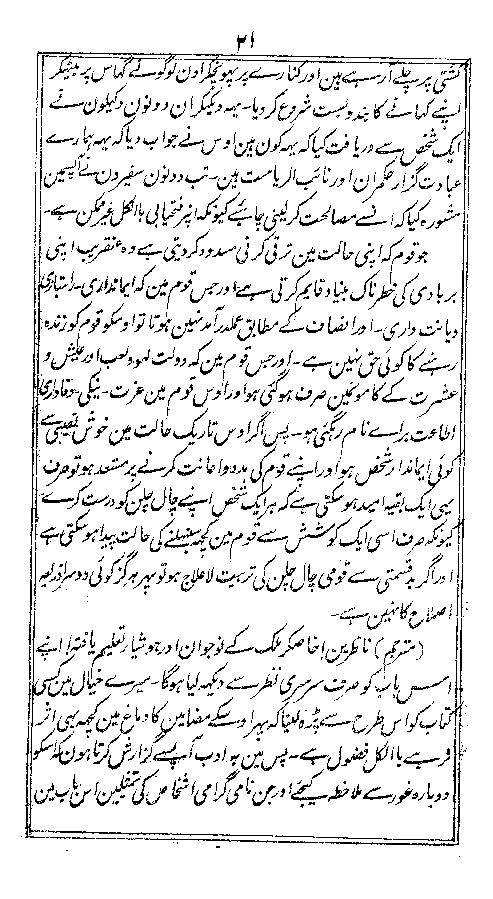 ۲۱
کشتی پر چلے آرہے ہین اور کنارے پر پہونچکر اون لوگونے گہاس پر بیٹہکر
اپنے کہانے کا بندوبست شروع کردیا۔ یہہ دیکہکر ان دونون وکیلون نے
ایک شخص سے دریافت کیا کہ یہہ کون ہین اوس نے جواب دیا کہ یہہ ہمارے
عبادت گزار حکمران اور نائب الریاست ہین۔ تب دونون سفیرون نے آپسمین
مشورہ کیا کہ انسے مصالحت کر لینی چاہئے کیونکہ انپر فتحیابی بالکل غیر ممکن ہے۔
جو قوم کہ اپنی حالت مین ترقی کرنی مسدود کردیتی ہے وہ عنقریب اپنی
بربادی کی خطرناک بنیاد قایم کرتی ہے اور جس قوم مین کہ ایمانداری۔ راستبازی
دیانت داری۔ اور انصاف کے مطابق عملدرآمد نہین ہوتا تو اوسکو قوم کو زندہ
رہنے کا کوئی حق نہین ہے۔ اور جس قوم مین کہ دولت لہو و لعب اور عیش و
عشرت کے کامونمین صرف ہوگئی ہو اور اوس قوم مین عزت۔ نیکی۔ وفاداری
اطاعت براے نام رہگئی ہو۔ پس اگر اوس تاریک حالت مین خوش نصیبی سے
کوئی ایماندار شخص ہو اور اپنے قوم کی مدد و اعانت کرنے پر مستعد ہو تو صرف
یہی ایک بقیہ امید ہوسکتی ہے کہ ہر ایک شخص اپنے چال چلن کو درست کرے
کیونکہ صرف اسی ایک کوشش سے قوم مین کچہہ سنبہلنے کی حالت پیدا ہوسکتی ہے
اور اگر بدقسمتی سے قومی چال چلن کی تربیت لاعلاج ہو تو پہر ہرگز کوئی دوسرا ذریعہ
اصلاح کا نہین ہے۔
(مترجم) ناظرین! خاصکر ملک کے نوجوان اور ہوشیار تعلیم یافتہ! اپنے
اس باب کو صرف سرسری نظر سے دیکہہ لیا ہوگا۔ میرے خیال مین کسی
کتاب کو اس طرح سے پڑہ لینا کہ پہر اوسکے مضامین کا دماغ مین کچہہ بہی اثر
نرہے بالکل فضول ہے۔ پس مین بہ ادب آپسے گزارش کرتا ہون کہ اسکو
دوبارہ غور سے ملاحظہ کیجے اور جن نامی گرامی اشخاص کی تمثیلین اس باب مین